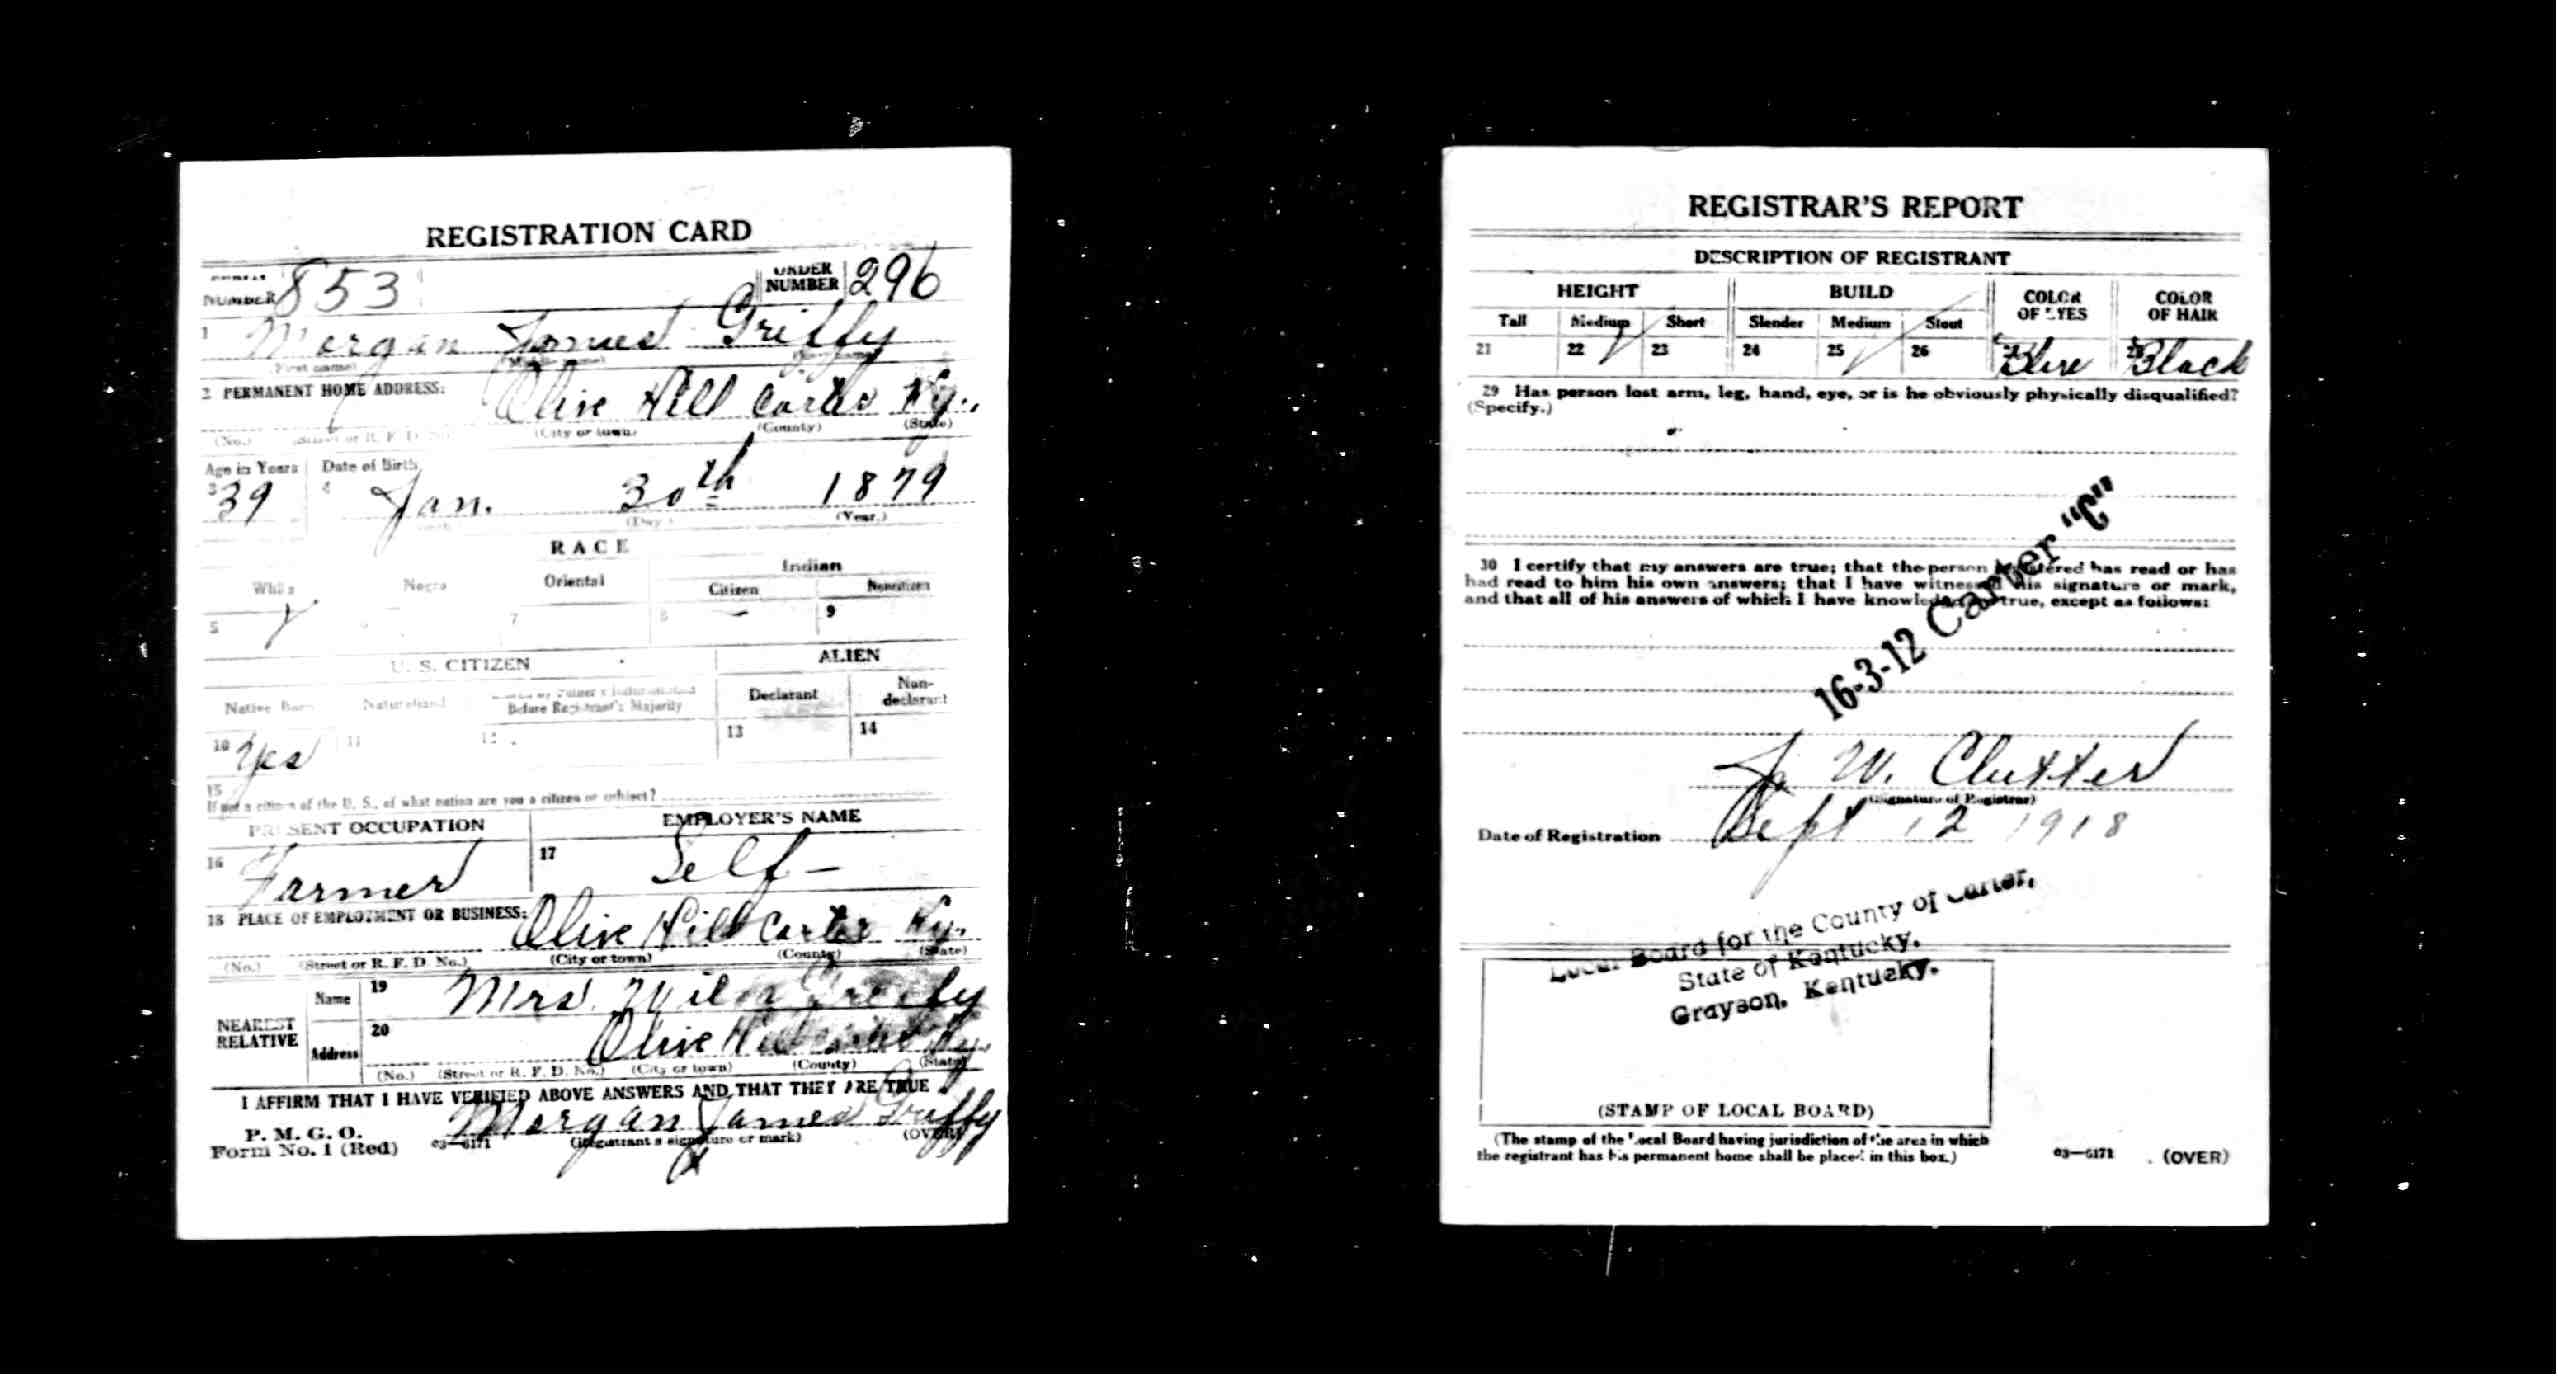 REGISTRATION CARD
SERIAL NUMBER 853 ORDER NUMBER 296
1 Morgan James Griffy
(First name) (Middle name) (Last name)
2 PERMANENT HOME ADDRESS: Olive Hill Carter Ky.
(No.) (Street or R. F. D. No.) (City or town) (County) (State)
Age in Years Date of Birth
3 39 4 Jan. 30th 1879
(Month) (Day) (Year.)
RACE
White Negro Oriental Indian
Citizen Noncitizen
5 6 7 8 9
U. S. CITIZEN ALIEN
Native Born Naturalized Citizen by Father's Naturalization Before Registrant's Majority Declarant Non-declarant
10 Yes 11 12 13 14
15
If not a citizen of the U. S., of what nation are you a citizen or subject?
PRESENT OCCUPATION EMPLOYER'S NAME
16 Farmer 17 Self –
18 PLACE OF EMPLOYMENT OR BUSINESS: Olive Hill Carter Ky.
(No.) (Street or R. F. D. No.) (City or town) (County) (State)
NEAREST RELATIVE Name 19 Mrs.
Address 20 Olive Hill Carter Ky.
(No.) (Street or R. F. D. No.) (City or town) (County) (State)
I AFFIRM THAT I HAVE VERIFIED ABOVE ANSWERS AND THAT THEY ARE TRUE
P. M. G. O.
Form No. 1 (Red) 03—6171 Morgan James Griffy
(Registrant's signature or mark) (OVER)
REGISTRAR'S REPORT
DESCRIPTION OF REGISTRANT
HEIGHT BUILD COLOR OF EYES COLOR OF HAIR
Tall Medium Short Slender Medium Stout
21 22 23 24 25 26 Blue Black
29 Has person lost arm, leg, hand, eye, or is he obviously physically disqualified?
(Specify.)
30 I certify that my answers are true; that the person registered has read or has
had read to him his own answers; that I have witnessed his signature or mark,
and that all of his answers of which I have knowledge are true, except as follows:
16-3-12 Carter "C"
W. Clutter
(Signature of Registrar)
Date of Registration Sept 12 1918
Local Board for the County of Carter,
State of Kentucky.
Grayson, Kentucky.
(STAMP OF LOCAL BOARD)
(The stamp of the Local Board having jurisdiction of the area in which
the registrant has his permanent home shall be placed in this box.)
03—6171 (OVER)